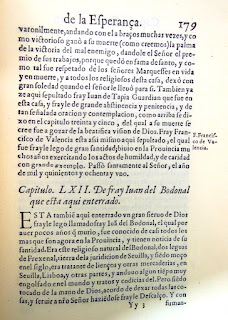 de la Esperança. 179
varonilmente, andando con el a braços muchas vezes, y co
mo victorioso ganò a su muerte (como creemos) la palma
de la victoria del mal enemigo, dandole el Señor el pre-
mio de sus trabajos, porque quedò en fama de santo, y co-
mo tal fue respetado de los señores Marquesses en vida
y en muerte, y a todos los religiosos desta casa, dexò con
gran soledad quando el Señor le lleuò para si. Tambien ya
ze aqui sepultado fray Iuan de Tapia Guardian que fue en
esta casa, y frayle de grande abstinencia y penitencia, y de
tan señalada oracion y contemplacion, como arriba se di-
zo en el capitulo treinta y cinco, del qual a su muerte se
cree fue a gozar de la beatifica vision de Dios. Fray Fran
cisco de Valencia està asi mismo aqui sepultado, el qual
fue frayle lego de gran santidad, biuio en la Prouincia mu
chos años exercitando los actos de humildad, y de caridad
con grande exemplo. Passò santamente al Señor, el año
de mil y quinientos y ochenta y vno.
S. Francisco de Valencia.
Capitulo. LXII. De fray Iuan del Bodonal
que esta aqui enterrado.
ESTA tambiē aqui enterrado vn gran sieruo de Dios
frayle lego llamado fray Iuā del Bodonal, el qual por
auer pocos años que murio, fue conocido de casi todos los
mas que son agora en la Prouincia, y tienen noticia de su
santidad. Era este religioso natural del Bodonal, dos leguas
de Frexenal, tierra de la jurisdicion de Seuilla, y siēdo moço
en el siglo, era tratante de lienços y otras mercaderias, en
Seuilla, Lisboa, y otras partes, y anduuo algun tiēpo muy
engolfado en el mundo y tratos y codicias del. Pero siēdo
tocado de la mano de Dios, acordò de dexar todas las co-
sas, y seruir a nr̄o Señor haziēdose frayle Descalço. Y con
Yy 3 suman-